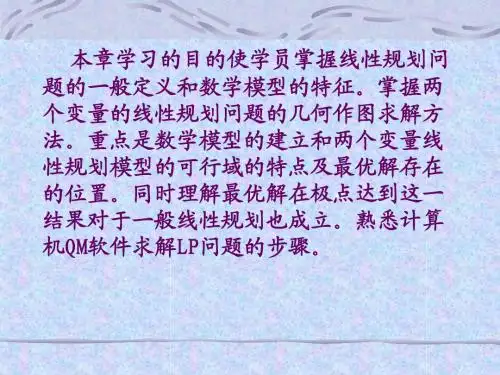 本章学习的目的使学员掌握线性规划问
题的一般定义和数学模型的特征。掌握两
个变量的线性规划问题的几何作图求解方
法。重点是数学模型的建立和两个变量线
性规划模型的可行域的特点及最优解存在
的位置。同时理解最优解在极点达到这一
结果对于一般线性规划也成立。熟悉计算
机QM软件求解LP问题的步骤。